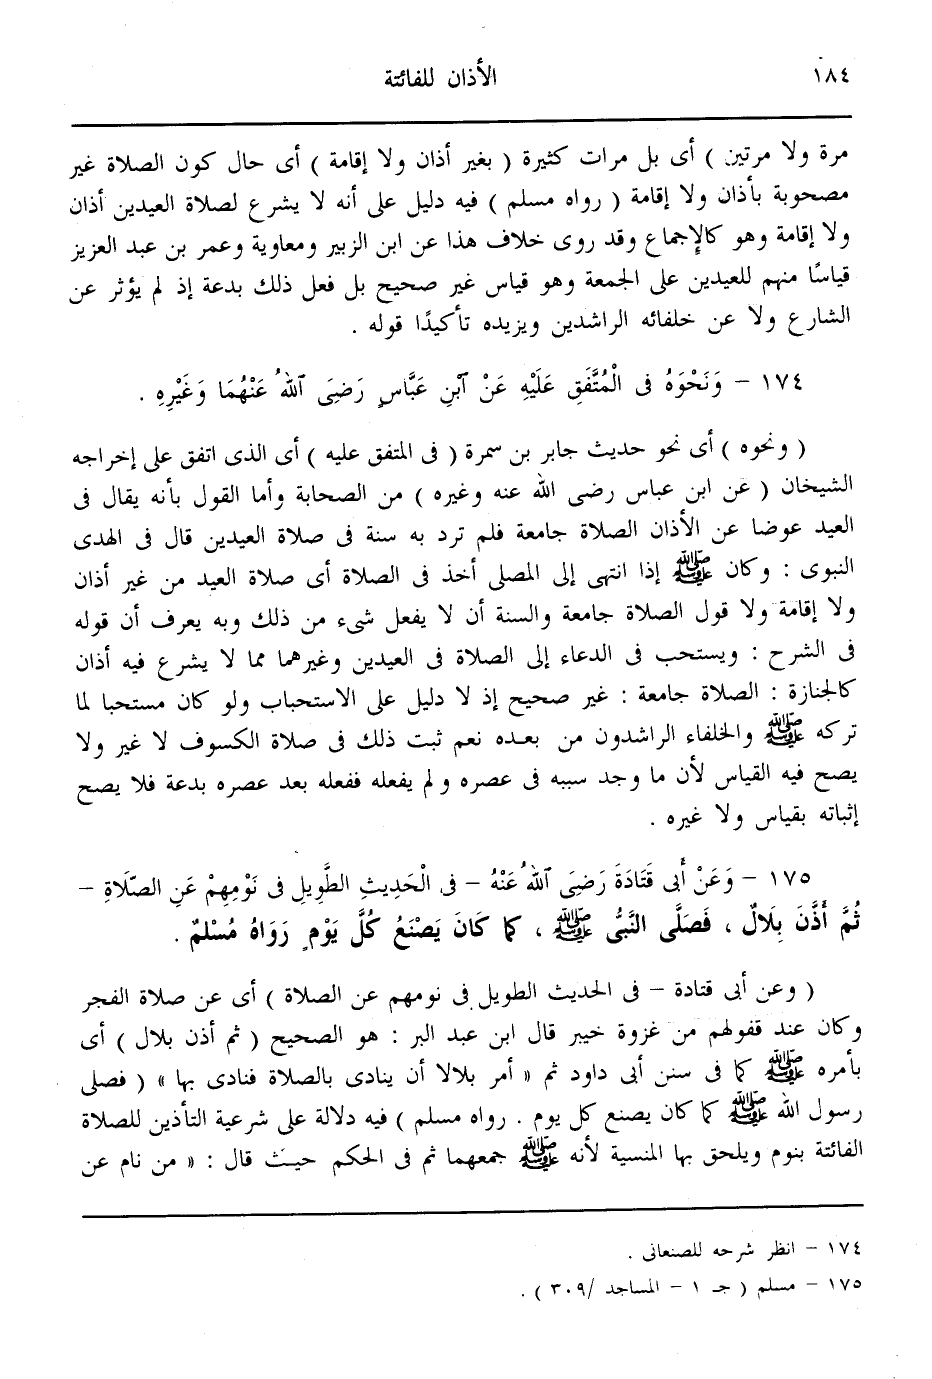 ١٨٤ الأذان للفائتة
مرة ولا مرتين ) أى بل مرات كثيرة ( بغير أذان ولا إقامة ) أى حال كون الصلاة غير
مصحوبة بأذان ولا إقامة ( رواه مسلم ) فيه دليل على أنه لا يشرع لصلاة العيدين أذان
ولا إقامة وهو كالإجماع وقد روى خلاف هذا عن ابن الزبير ومعاوية وعمر بن عبد العزيز
قياسًا منهم للعيدين على الجمعة وهو قياس غير صحيح بل فعل ذلك بدعة إذ لم يؤثر عن
الشارع ولا عن خلفائه الراشدين ويزيده تأكيدًا قوله .
١٧٤ – وَنَحْوَهُ فى الْمُتَّفَقِ عَلَيْهِ عَنْ ٱبْنِ عَبَّاسٍ رَضِىَ ٱللهُ عَنْهُمَا وَغَيْرِهِ .
( ونحوه ) أى نحو حديث جابر بن سمرة ( فى المتفق عليه ) أى الذى اتفق على إخراجه
الشيخان ( عن ابن عباس رضى الله عنه وغيره ) من الصحابة وأما القول بأنه يقال فى
العيد عوضا عن الأذان الصلاة جامعة فلم ترد به سنة فى صلاة العيدين قال فى الهدى
النبوى : وكان ﷺ إذا انتهى إلى المصلى أخذ فى الصلاة أى صلاة العيد من غير أذان
ولا إقامة ولا قول الصلاة جامعة والسنة أن لا يفعل شىء من ذلك وبه يعرف أن قوله
فى الشرح : ويستحب فى الدعاء إلى الصلاة فى العيدين وغيرهما مما لا يشرع فيه أذان
كالجنازة : الصلاة جامعة : غير صحيح إذ لا دليل على الاستحباب ولو كان مستحبا لما
تركه ﷺ والخلفاء الراشدون من بعده نعم ثبت ذلك فى صلاة الكسوف لا غير ولا
يصح فيه القياس لأن ما وجد سببه فى عصره ولم يفعله ففعله بعد عصره بدعة فلا يصح
إثباته بقياس ولا غيره .
١٧٥ – وَعَنْ أَبِى قَتَادَةَ رَضِىَ ٱللهُ عَنْهُ – فى الْحَدِيثِ الطَّوِيلِ فى نَوْمِهِمْ عَنِ الصَّلَاةِ –
ثُمَّ أَذَّنَ بِلَالٌ ، فَصَلَّى النَّبِىُّ ﷺ ، كما كَانَ يَصْنَعُ كُلَّ يَوْمٍ رَوَاهُ مُسْلمٌ .
( وعن أبى قتادة – فى الحديث الطويل فى نومهم عن الصلاة ) أى عن صلاة الفجر
وكان عند قفولهم من غزوة خيبر قال ابن عبد البر : هو الصحيح ( ثم أذن بلال ) أى
بأمره ﷺ كما فى سنن أبى داود ثم « أمر بلالا أن ينادى بالصلاة فنادى بها » ( فصلى
رسول الله ﷺ كما كان يصنع كل يوم . رواه مسلم ) فيه دلالة على شرعية التأذين للصلاة
الفائتة بنوم ويلحق بها المنسية لأنه ﷺ جمعهما ثم فى الحكم حيث قال : « من نام عن
١٧٤ – انظر شرحه للصنعانى .
١٧٥ – مسلم ( جـ ١ – المساجد /٣٠٩ ) .